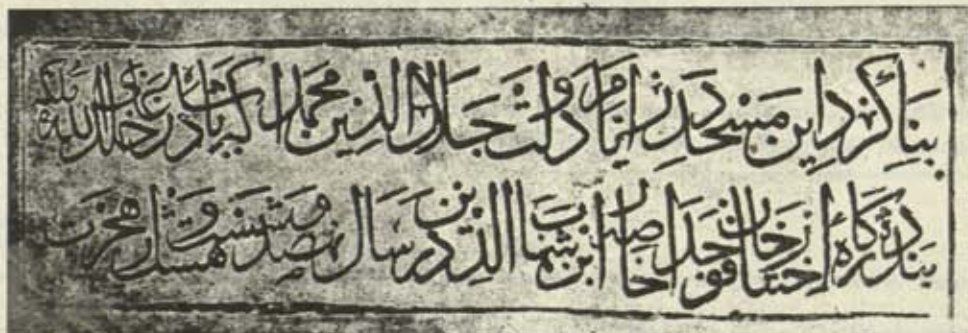 بناء کرد این مسجد در ایام دولت جلال الدین محمد اکبر پادشاه غازی خلد الله ملکه
درگاه خان فوجدار ابن شهاب الدین در سال نهصد و شصت و هجرت